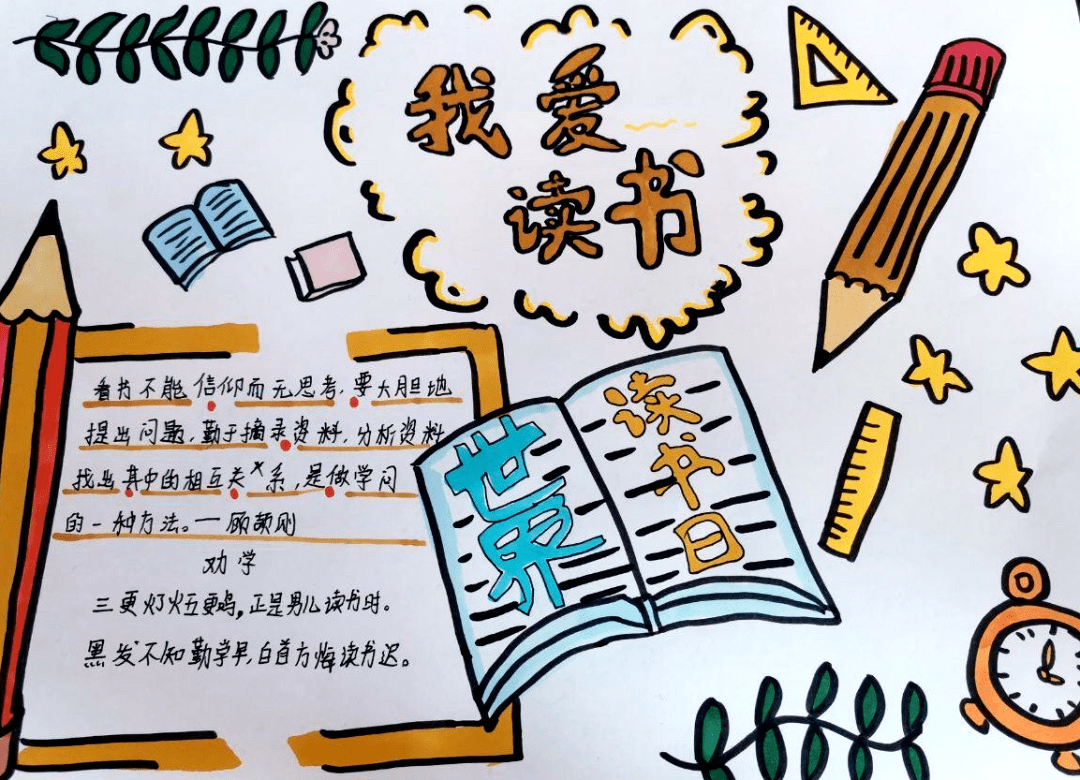 我爱
读书
看书不能信仰而无思考,要大胆地
提出问题,勤于摘录资料,分析资料
找出其中的相互关系,是做学问
的一种方法。一顾颉刚
劝学
三更灯火五更鸡,正是男儿读书时。
黑发不知勤学早,白首方悔读书迟。
世界
读书日